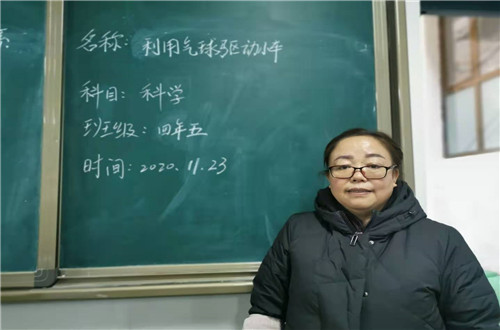 名称: 利用气球驱动小车
科目: 科学
班级: 四年五
时间: 2020.11.23